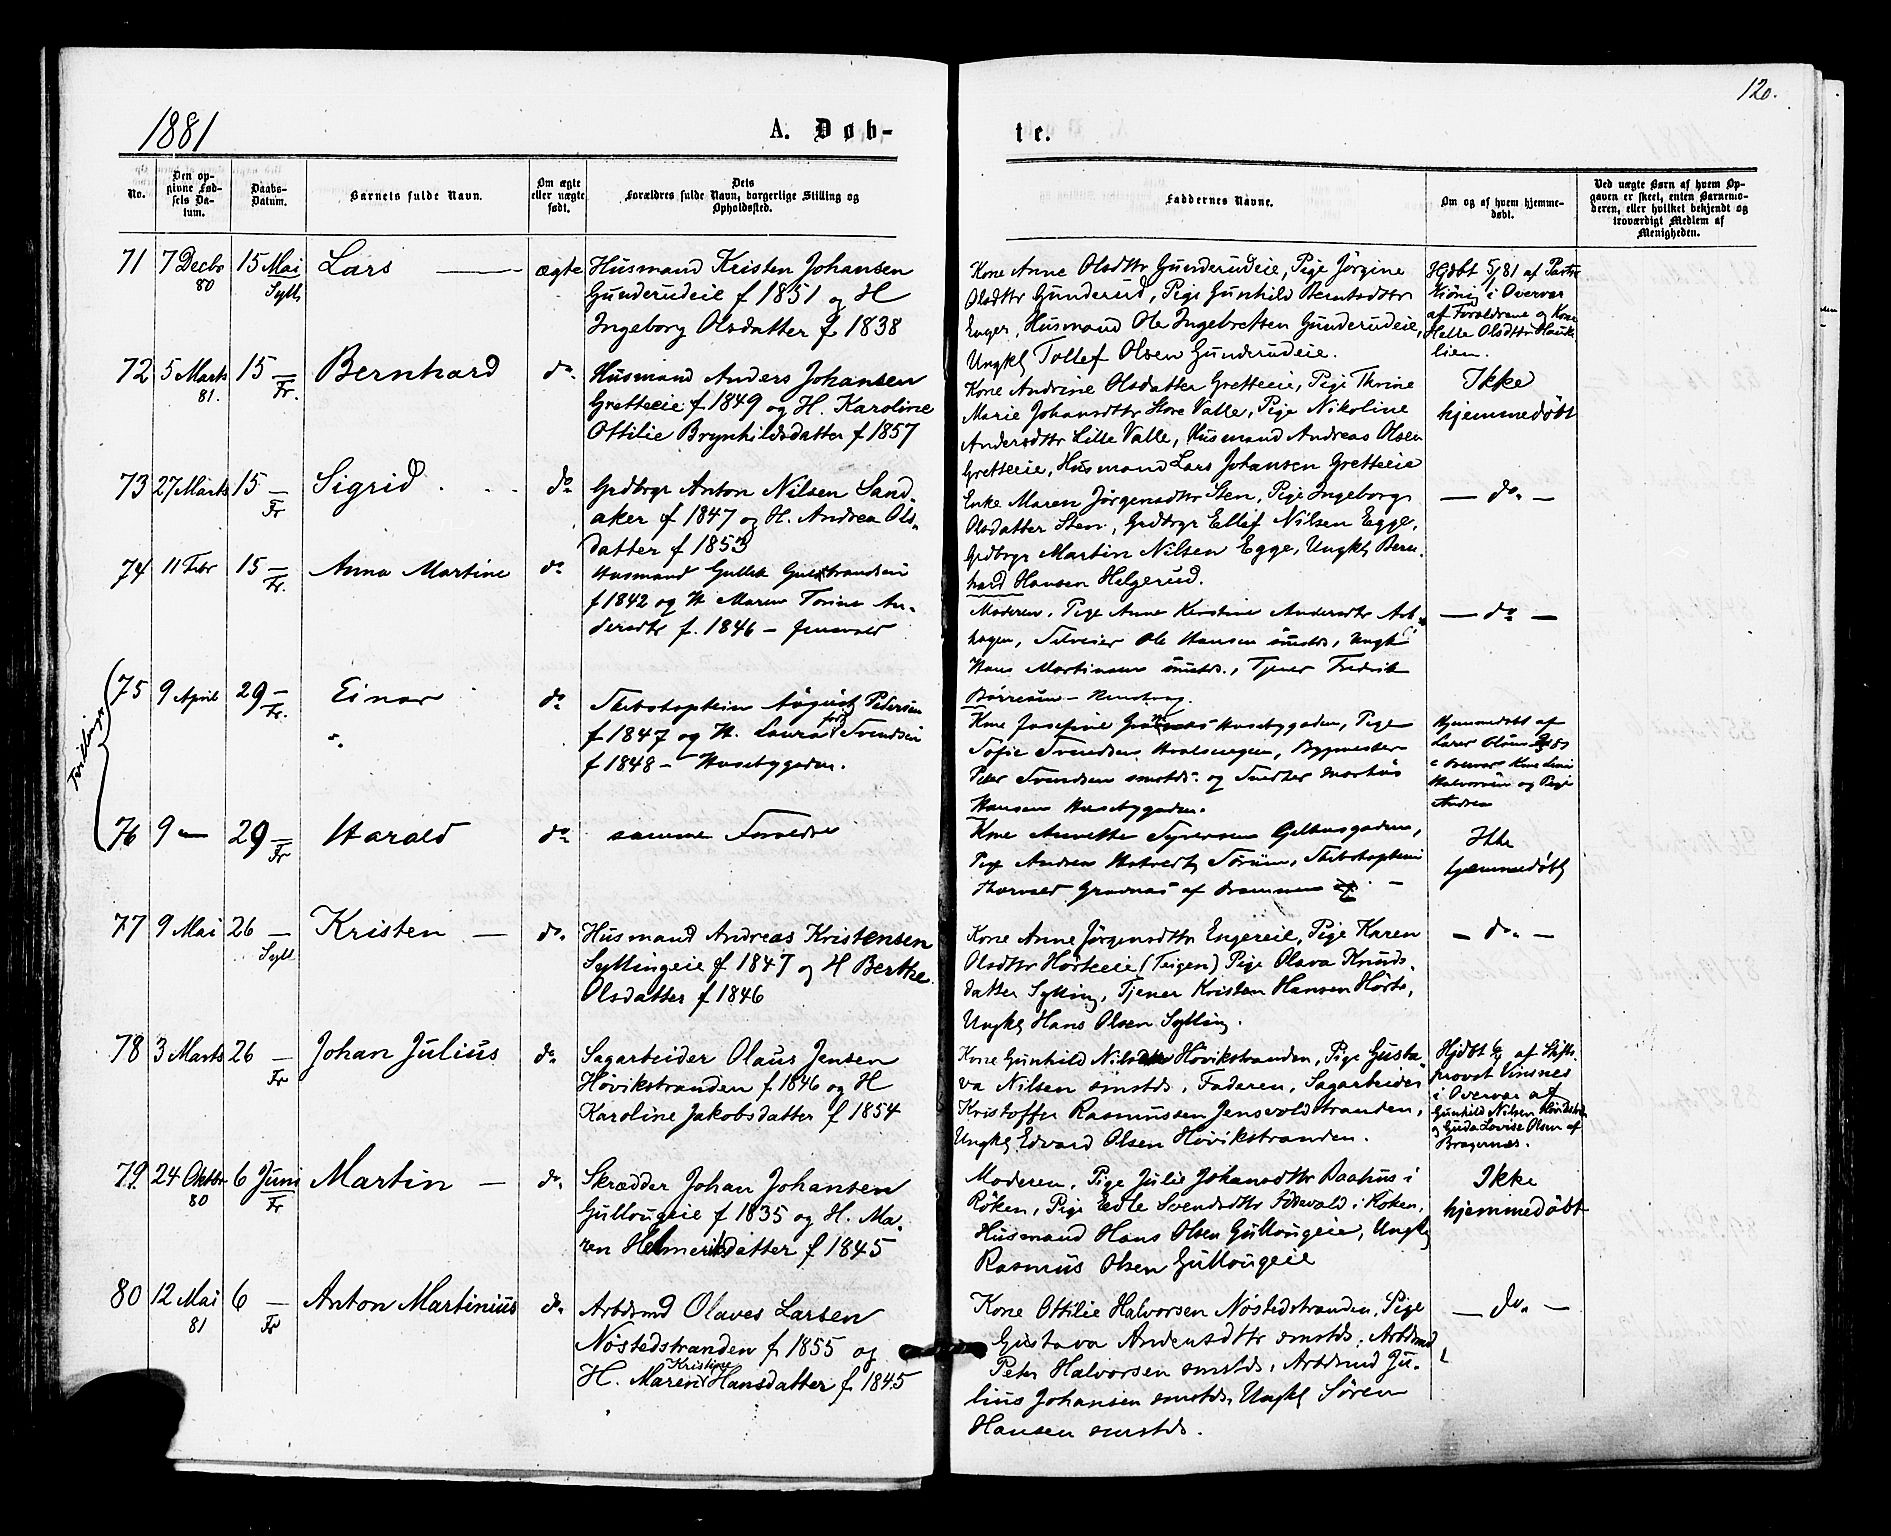 120.
1881
A. Døb-
te.
No.
Den op-
givne Fød-
sels Da-
tum.
Daabs-
Datum.
Barnets fulde Navn.
Om ægte
eller uægte
født.
Dets
Forældres fulde Navn, borgerlige Stilling og
Opholdssted.
Faddernes Navne.
Om og af hvem hjemme-
døbt.
Ved uægte Børn af hvem Op-
gaven er skeet, enten Barnemo-
deren, eller hvilket bekjendt og
troværdigt Medlem af
Menigheden.
71 7 Decbr 80 15 Mai Syll Lars ægte
Husmand Kristen Johansen
Gunderudeie f 1851 og H
Ingeborg Olsdatter f 1838
Kone Anne Olsdttr Gunderudeie, Pige Jörgine
Olsdttr Gunderud, Pige Gunhild Berntsdttr
Enger, Husmand Ole Ingebretsen Gunderudeie,
Ungkl Tollef Olsen Gunderudeie.
Hjdbt 5/81 af
i Overvær
af Forældrene og Kone
Helle Olsdttr Hauk-
lien.
72 5 Marts 81. 15 — Fr. Bernhard do.
Husmand Anders Johansen
Gretteeie f 1849 og H. Karoline
Ottilie Brynhildsdatter f 1857
Kone Andrine Olsdatter Gretteeie, Pige Thrine
Marie Johansdttr Store Valle, Pige Nikoline
Andersdttr Lille Valle, Husmand Andreas Olsen
Gretteeie, Husmand Lars Johansen Gretteeie
Ikke
hjemmedøbt
73 27 Marts 15 — Fr Sigrid do.
Grdbrgr Anton Nilsen Sand-
aker f 1847 og H. Andrea Ols-
datter f 1853
Enke Maren Jørgensdttr Sten, Pige Ingeborg
Olsdatter Sten, Grdbrgr Ellef Nilsen Egge,
Grdbrgr Martin Nilsen Egge, Ungkl Bern-
hard Hansen Helgerud.
— do. —
74 11 Febr 15 — Fr. Anna Martine do
Husmand Gulbrandsen
f 1842 og H Maren Torine An-
dersdtr f. 1846 –
Moderen, Pige Anne Kirstine Andersdtr
hagen, Ole Hansen smstds, Ungk
Hans Martinsen smstds., Tjener Fredrik
Børresen –
— do —
Tvilling
75 9 April 29 — Fr. Einar do
Skibskaptein August Pedersen
f 1847 og H. Laura født Svendsen
f 1848 – Husebygaden.
Kone Josefine Husebygaden, Pige
Sofie Svendsen, Bygmester
Peter Svendsen smstds og
Hansen Husebygaden.
Hjemmedøbt af
i Overvær Kone
Halvorsen og Pige
Andrea
76 9 — 29 — Fr Harald do
samme Forældre
Kone Annette Syversen,
Pige Andrea Sørum, Skibskaptein
Thorvald Gravnas af Drammen
Ikke
hjemmedøbt
77 9 Mai 26 — Syll Kristen — do.
Husmand Andreas Kristensen
Syllingeie f 1847 og H Berthe
Olsdatter f 1846
Kone Anne Jørgensdttr Engereie, Pige Karen
Olsdttr Hörteeie (Teigen) Pige Olava Knuds-
datter Sylling, Tjener Kristen Hansen Hørte,
Ungkl Hans Olsen Sylling.
— do. —
78 3 Marts 26 — Fr Johan Julius do.
Sagarbeider Olaus Jensen
Hövikstranden f. 1846 og H
Karoline Jakobsdatter f 1854
Kone Gunhild Nilsdttr Hövikstranden, Pige Gusta-
va Nilsen smstds, Faderen, Sagarbeider
Kristoffer Rasmussen Jensvoldstranden,
Ungkl Edvard Olsen Hövikstranden.
Hjdbt af Stifts-
provst Vinsnes
i Overvær af
Gunhild Nilsen
og Gusta Lovise Olsen af
Bragernæs.
79 24 Oktbr 80 6 Juni Fr Martin — do.
Skrædder Johan Johansen
Gullougeie f 1835 og H. Ma-
ren Helmeriksdatter f 1845
Moderen, Pige Julie Johansdttr Raahus i
Röken, Pige Edle Svendsdttr i Röken,
Husmand Hans Olsen Gullougeie, Ungkl
Rasmus Olsen Gullougeie
Ikke
hjemmedøbt
80 12 Mai 81 6 — Fr Anton Martinius do.
Arbdsmd Olaves Larsen
Nöstedstranden f 1855 og
H. Maren Kristine Hansdatter f 1845
Kone Ottilie Halvorsen Nöstedstranden, Pige
Gustava Andersdttr smstds, Arbdsmd
Peter Halvorsen smstds, Arbdsmd Ju-
lius Johansen smstds, Ungkl Sören
Hansen smstds.
— do. —